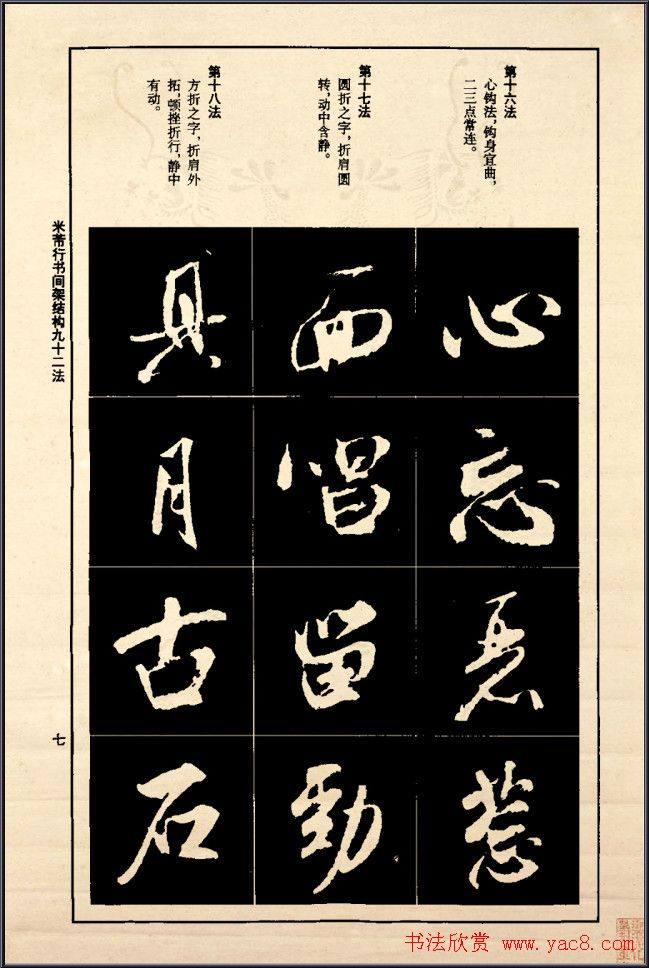 第十六法
心钩法，钩身宜曲，
二三点常连。
第十七法
圆折之字，折肩圆
转，动中含静。
第十八法
方折之字，折肩外
拓，顿挫折行，静中
有动。
心忘恶惹
面唱留勁
具月古石
米芾行书间架结构九十二法
七
书法欣赏 www.yac8.com